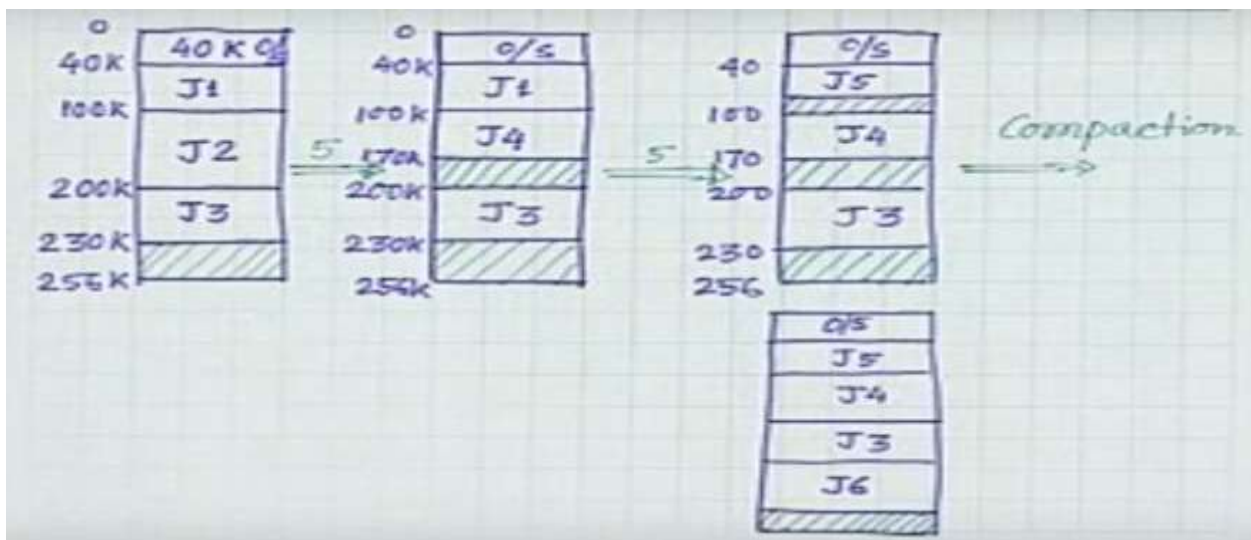 0
40K
100K
200K
230K
256K
40 K O/S
J1
J2
J3
5
0
40K
100K
170K
200K
230K
256K
O/S
J1
J4
J3
5
40
100
170
200
230
256
O/S
J5
J4
J3
Compaction
O/S
J5
J4
J3
J6